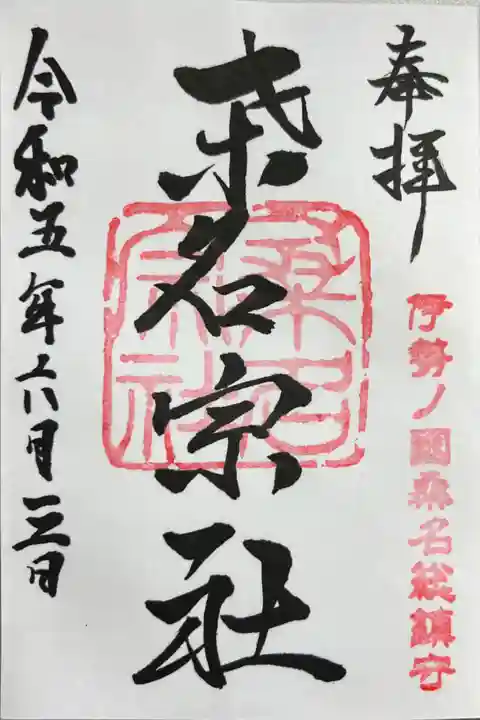 奉拝
伊勢ノ國桑名総鎮守
桒名宗社
桑名宗社
令和五年六月三日